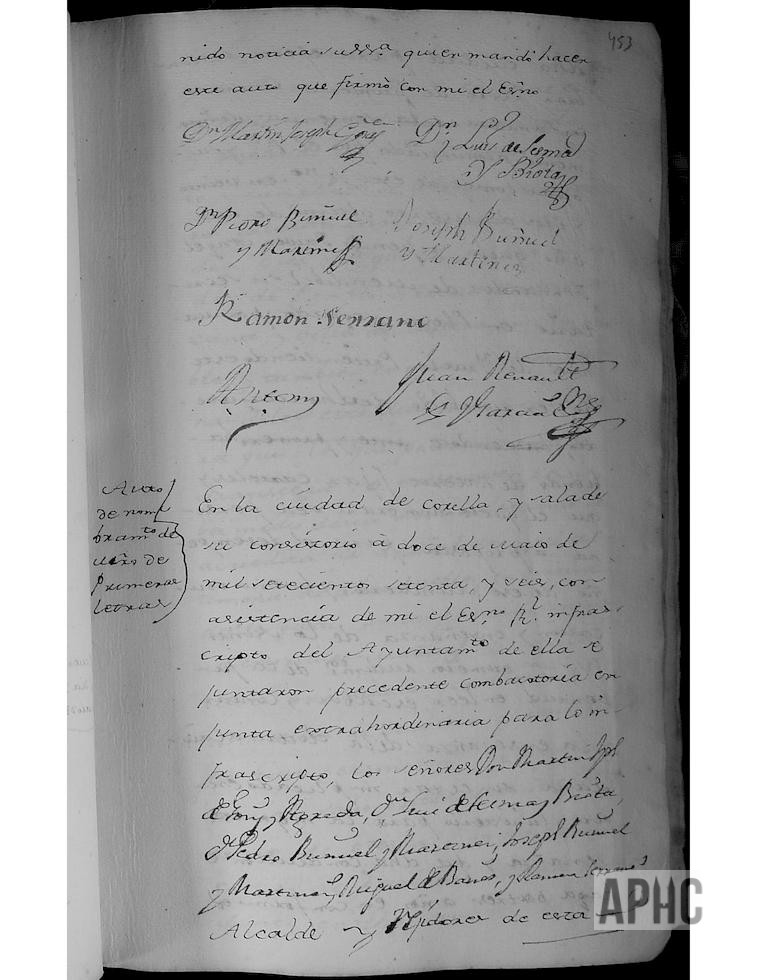 453
nido noticia su ssª. quien mandó hacer
este auto que firmó con mi el Esno
Dn Martin Joseph Goñi
Dn Luis de Sesma
y Biota
Dn Pedro Buñuel
y Maxcinez
Joseph Buñuel
y Martinez
Ramon Serrano
Antemi
Juan Renault
y Garcia Esno
Auto
de nom
bramto de
mro de
Primeras
letras
En la ciudad de corella, y sala de
su consistorio à doce de Maio de
mil setecientos setenta, y seis, con
asistencia de mi el Esno Rl. infras
cripto del Ayuntamto de ella se
juntaron precedente combocatoria en
junta extrahordinaria para lo in-
frascripto, los señores Don Martin Jph
de Goñi y Agreda, Dn Luis de Sesma y Biota,
Dn Pedro Buñuel y Maxcinez, Joseph Buñuel
y Martinez, Miguel de Banos, y Ramon Serrano
Alcalde y Rejidores de esta
APHC